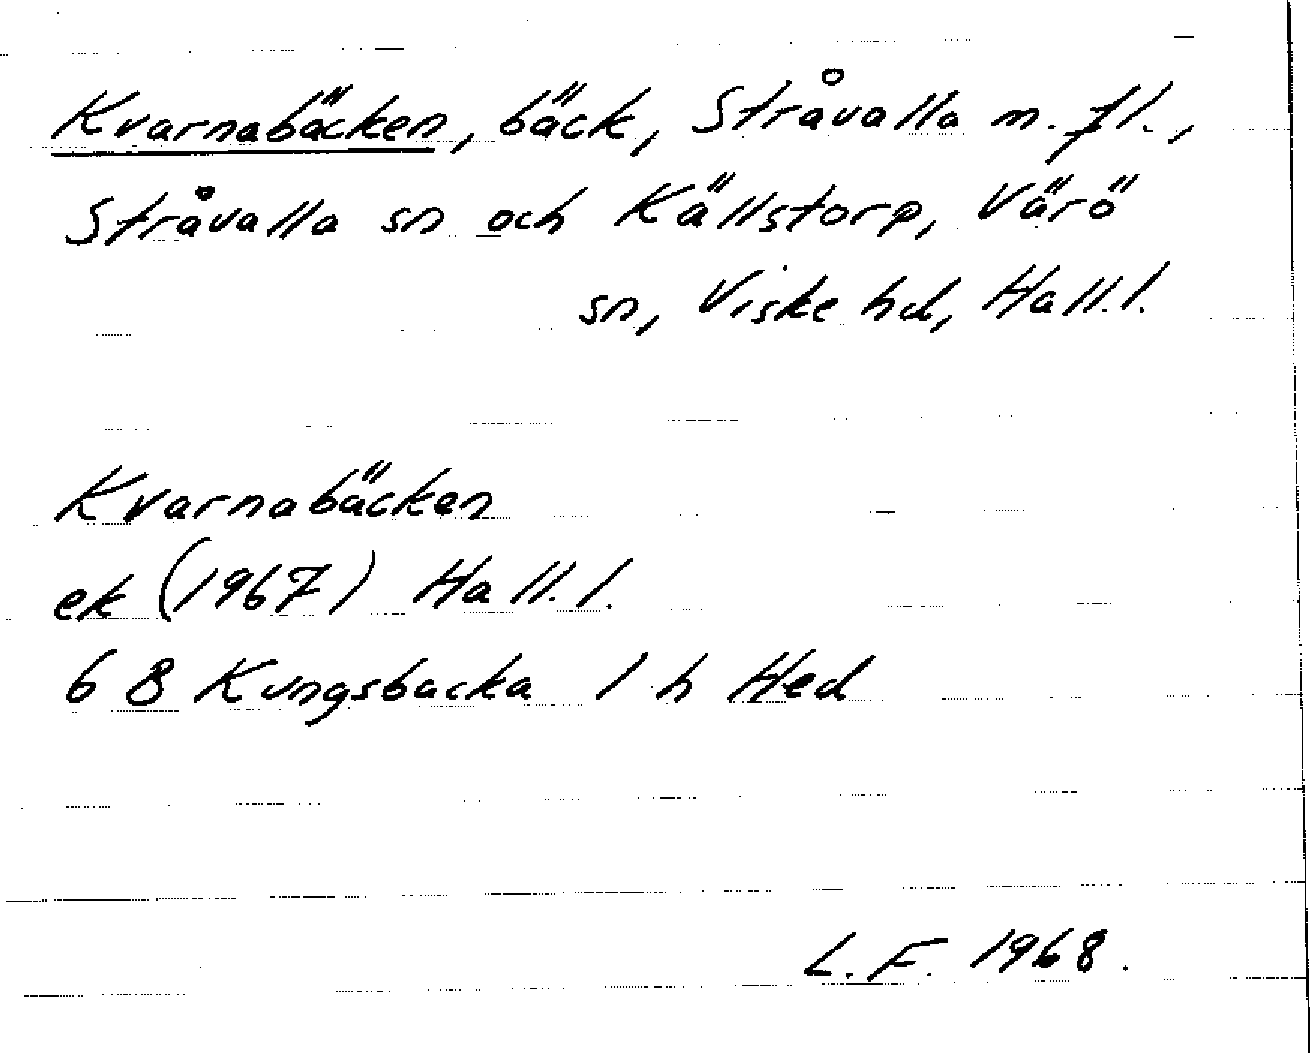 Kvarnabäcken, bäck, Stråvalla m. fl.,
Stråvalla sn och Källstorp, Värö
sn, Viske hd, Hall. l.
Kvarnabäcken
ek (1967) Hall. l.
6 B Kungsbacka 1 h Hed
L. F. 1968.